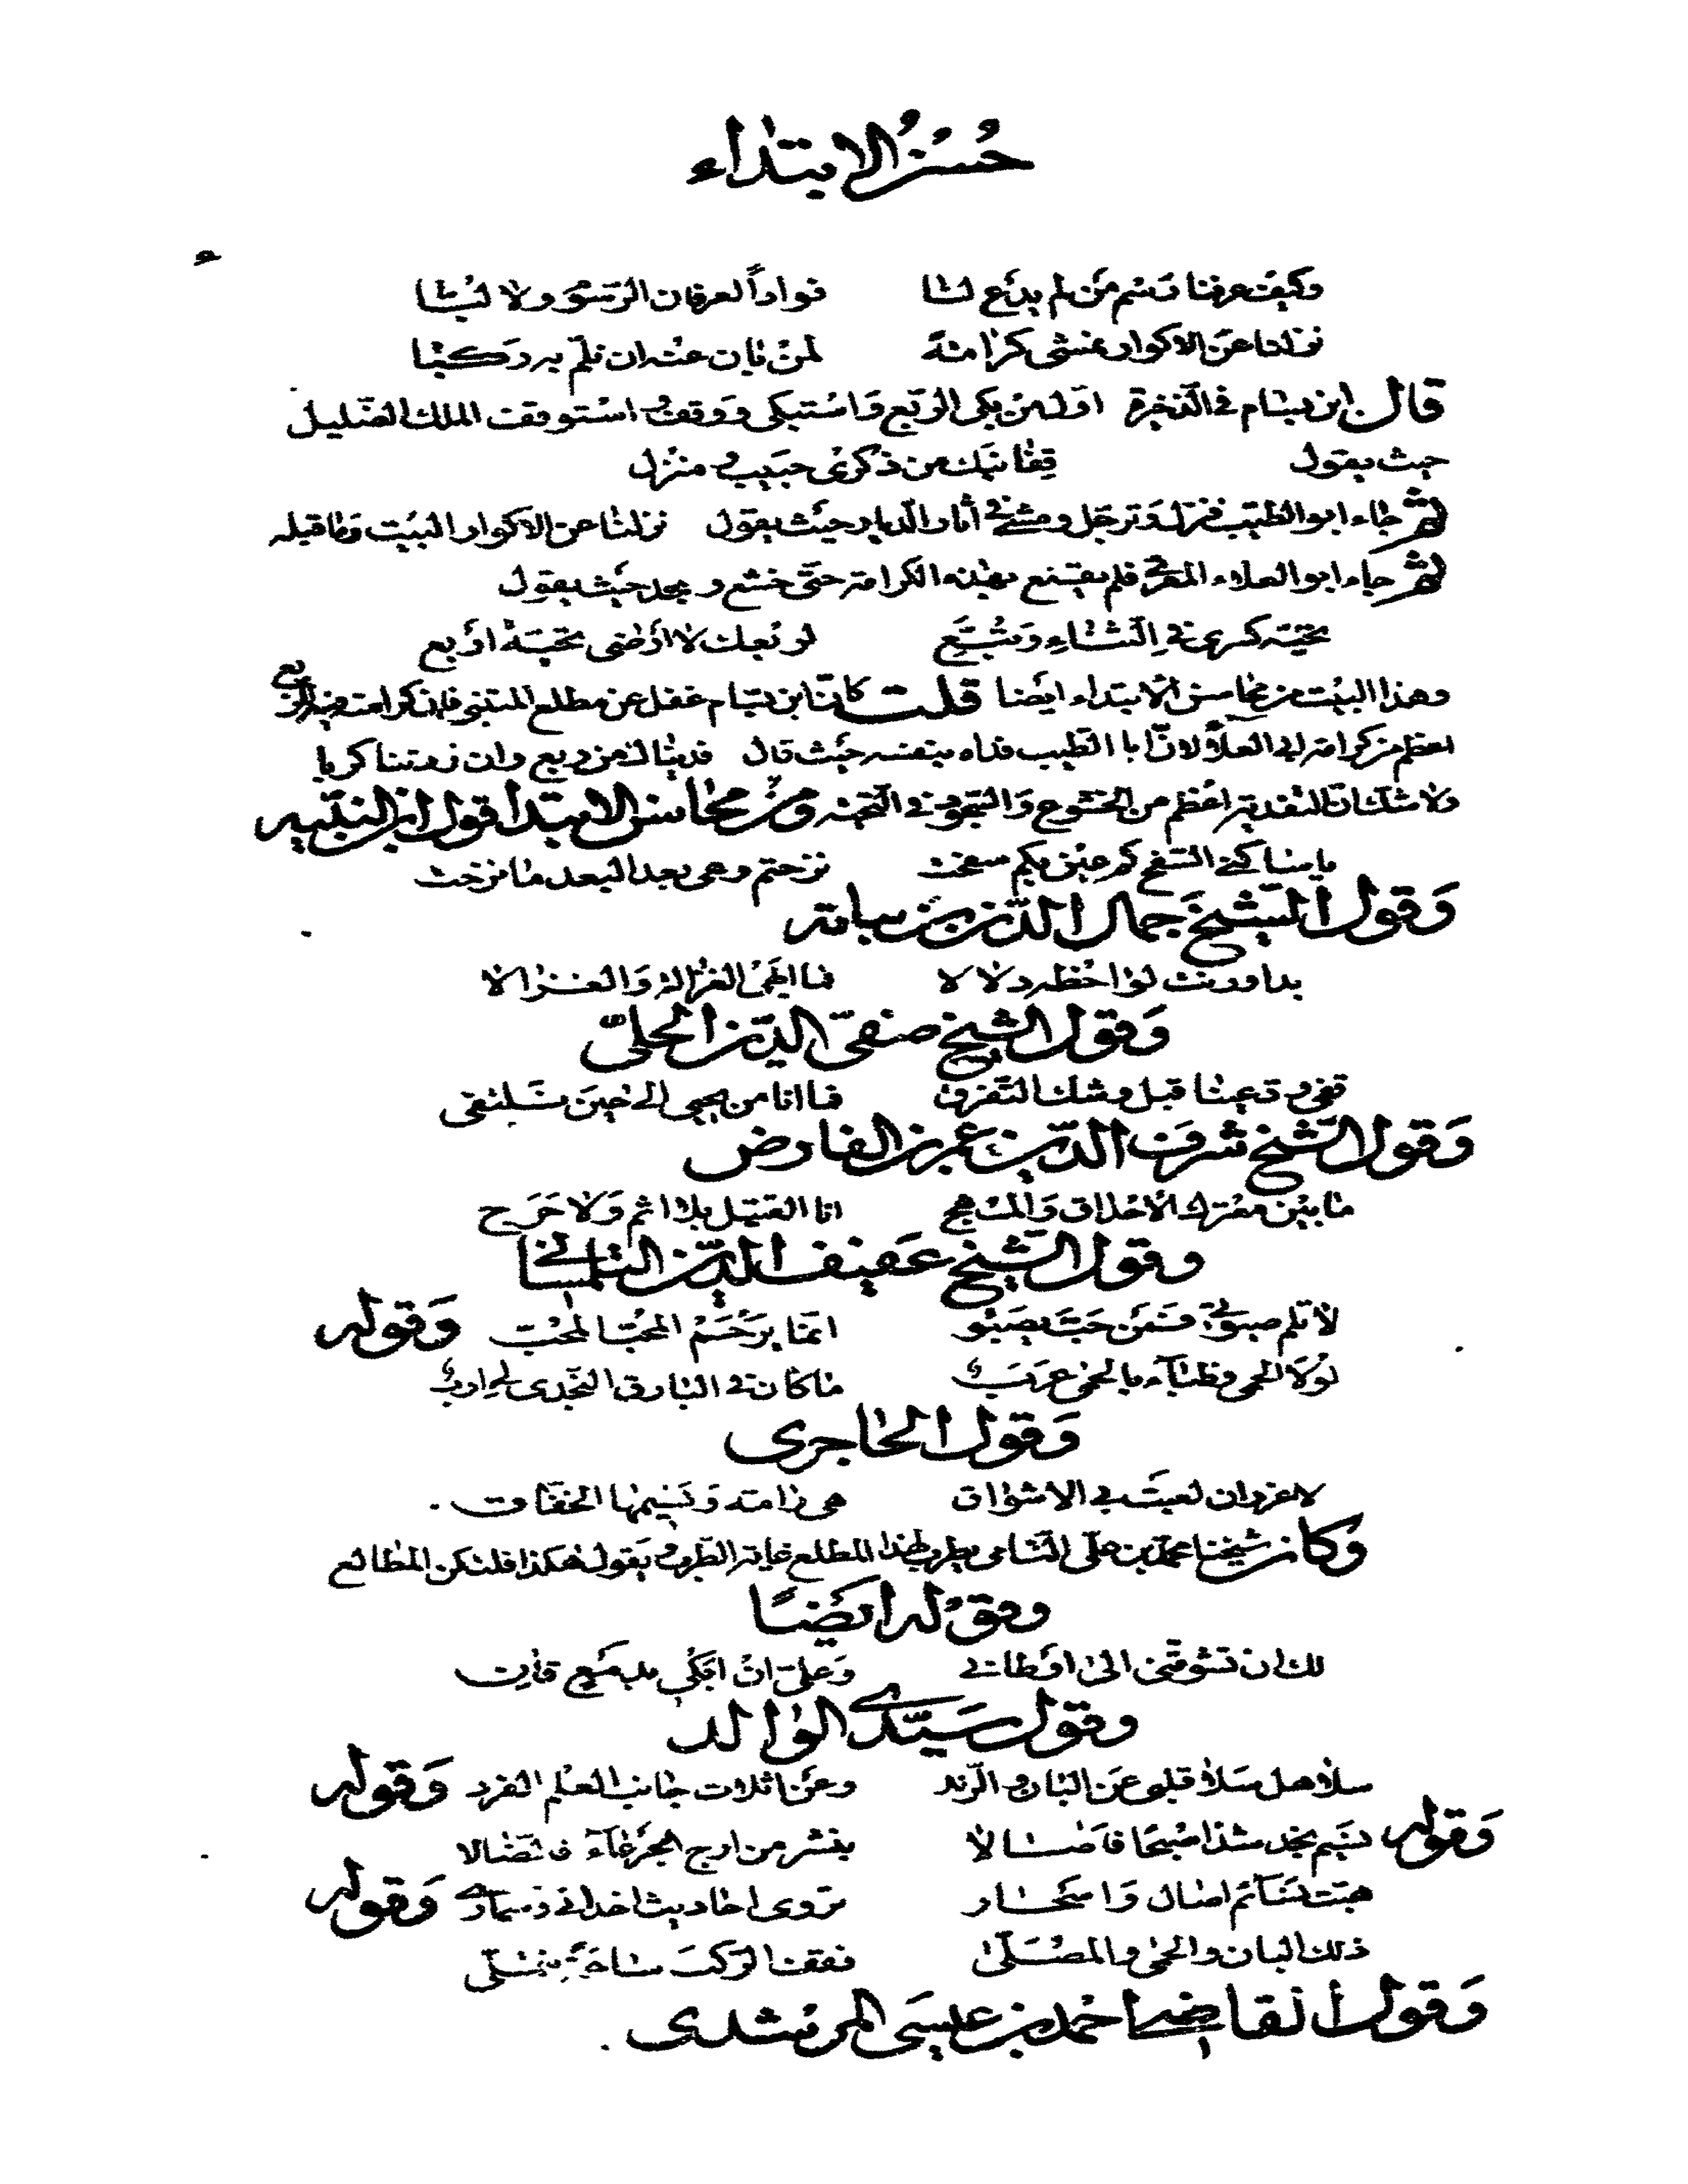 حُسْنُ الابتداء
وكيف عرفنا رسم من لم يدع لنا فواداً لعرفان الرسوم ولا لبّا
نزلنا عن الاكوار نمشى كرامة لمن بان عنه ان نلمّ به ركبا
قال ابن بسام في الذخيرة اوّل من بكى الربع واستبكى ووقف واستوقف الملك الضليل
حيث يقول قفا نبك من ذكرى حبيب ومنزل
ثم جاء ابو الطيب فنزل وترجّل ومشى في آثار الديار حيث يقول نزلنا عن الاكوار البيت وما قبله
ثم جاء ابو العلاء المعري فلم يقنع بهذه الكرامة حتى خشع وسجد حيث يقول
تحيّة كسرى في الثناء وتبّع لربعك لا ارضى تحيّة اربع
وهذا البيت من محاسن الابتداء ايضا قلت كانّ ابن بسام غفل عن مطلع المتنبي فان كرامته فيه للربع
اعظم من كرامة ابي العلاء لانّ ابا الطيب فداه بنفسه حيث قال فديناك من ربع وان زدتنا كربا
ولا شك ان التفدية اعظم من الخشوع والسجود في التحية ومن محاسن الابتدا قول ابن النبيه
يا ساكني السفح كم عين بكم سفحت نزحتم وهي بعد البعد ما نزحت
وقول الشيخ جمال الدين بن نباتة
بدا ورنت لواحظه دلالا فما ابهى الغزالة والغزالا
وقول الشيخ صفيّ الدين الحليّ
قفي ودّعينا قبل وشك التفرق فما انا من يحيى الى حين نلتقى
وقول الشيخ شرف الدين عمر بن الفارض
ما بين معترك الاحداق والمهج انا القتيل بلا اثم ولا حرج
وقول الشيخ عفيف الدين التلمساني
لا تلم صبوتي فمن حبّ يصبو انما يرحم المحبّ المحبّ وقوله
لولا الحمى وظباء بالحمى عرب ما كان في البارق النجدى لى ارب
وقول الحاجرى
لا غرو ان لعبت بي الاشواق هي رامة ونسيمها الخفاق
وكان شيخنا محمد بن علي الشامي يطرب لهذا المطلع غاية الطرب ويقول هكذا فلتكن المطالع
وقوله ايضا
لك ان تشوقني الى اوطاني وعليّ ان ابكي بدمع قاني
وقول سيّدي الوالد
سلا هل سلا قلبي عن البان والرند وعن اثلات جانب العلم الفرد وقوله
وقوله نسيم نجد شذا صبحا فاصالا بنشر من اريج الجرعاء فالضالا
هبّت نسائم اصال واسحار تروى احاديث اخداني وسمّاري وقوله
ذلك البان والحمى والمصلّى فقفا الركب ساعة نتملّى
وقول القاضي احمد بن عيسى المرشدى